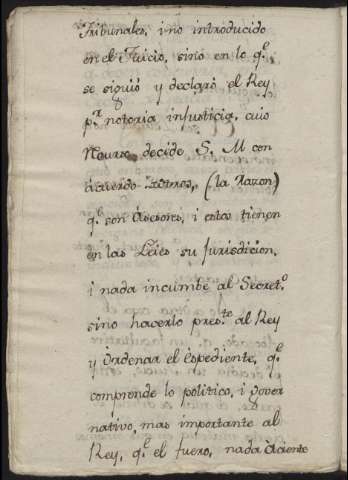 Tribunales, i no introducido
en el Juicio, sino en lo q.e
se siguió y declaró el Rey
p.r notoria injusticia, cuio
Recurso decide S. M con
acuerdo (la razon)
q.e son Asesores, i estos tienen
en las Leies su jurisdicion,
i nada incumbe al Secret.o
sino hacerlo pres.te al Rey
y Ordenar el Espediente, q.e
comprende lo politico, i gover
nativo, mas importante al
Rey, q.e el fuero, nada